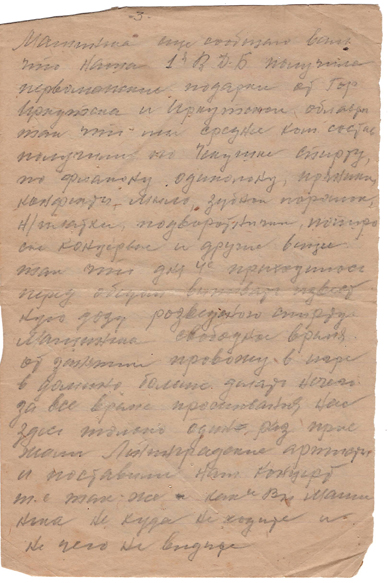 3.
Машинька еще сообщаю вам
что наша 1я В.Д.Б получила
первомайские подарки от Гор
Иркутска и Иркутской области
так что мы средне ком. состав
получили по Чекушке спирту,
по флакону одиколону, пряники,
конфекты, мыло, зубной порошок,
н/платки, подворотнички, папиро
сы консервы и другие вещи.
так что дня 4е приходилось
перед обедом выпивать
кую дозу розведеного спирту
Машинька свободное время
от занятий провожу в
в больше делать нечего
за все время просбования нас
здесь только один раз прие
жжали Ленинградские артисты
и поставили нам концерт
т.е так-же как и Вы Маши
нька не куда не ходите и
не чего не видите